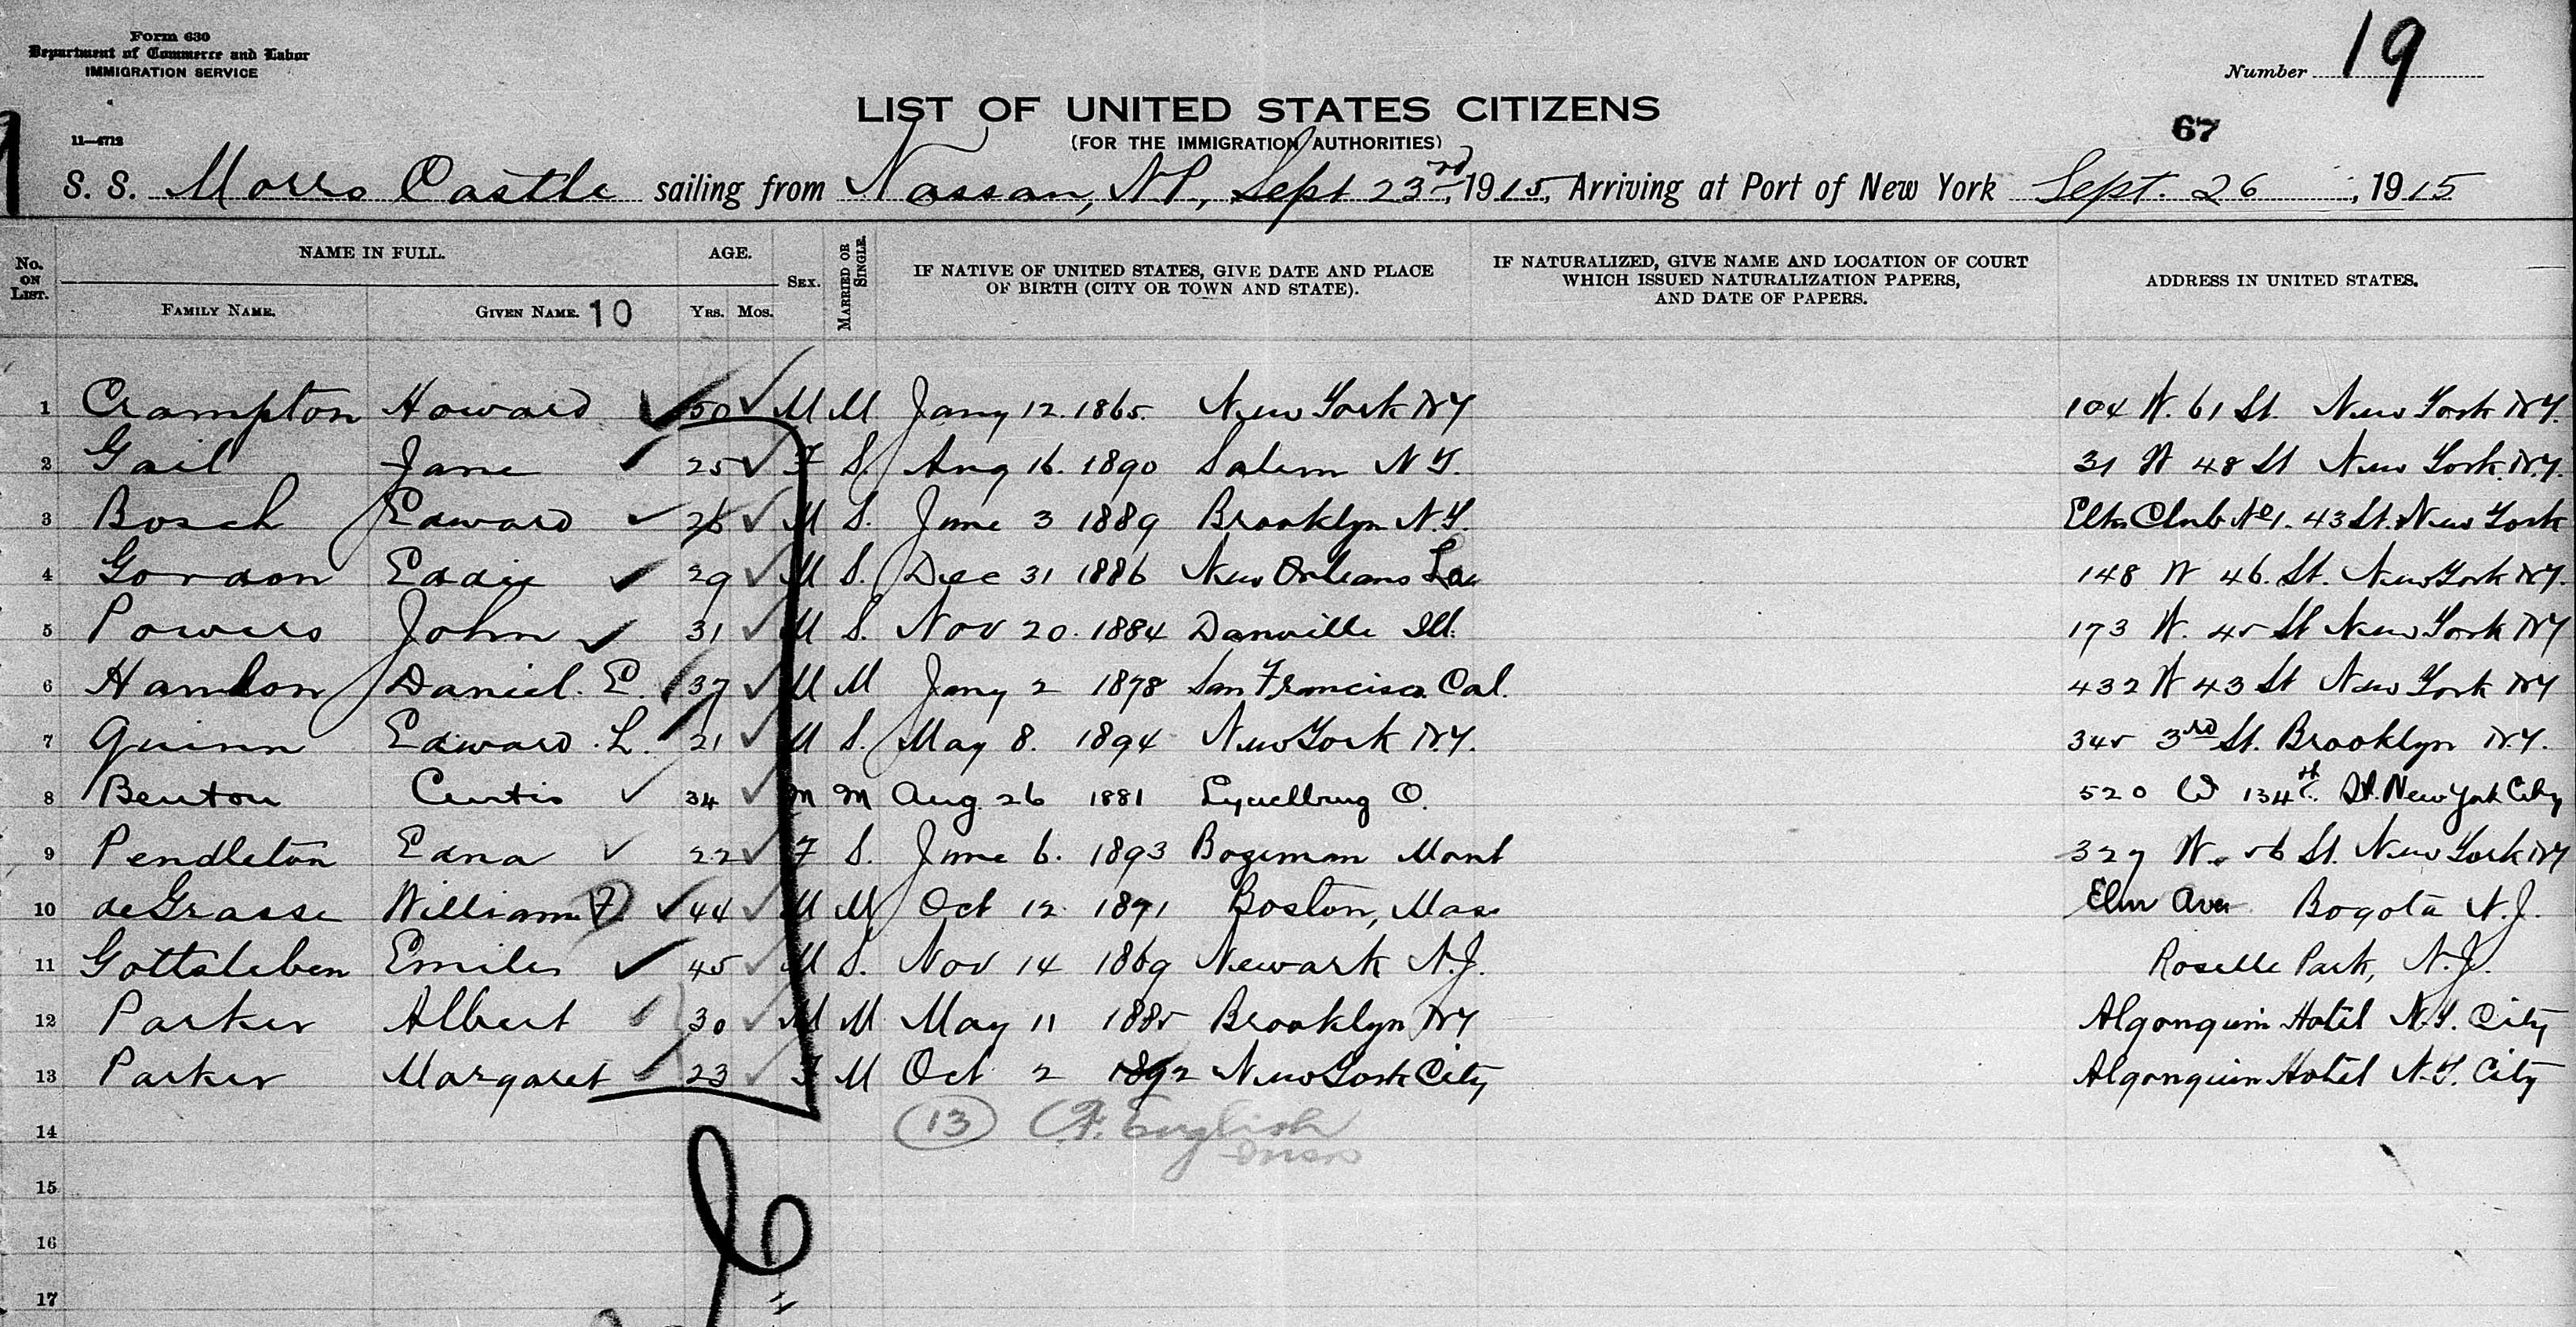 Form 630
Department of Commerce and Labor
IMMIGRATION SERVICE
Number 19
LIST OF UNITED STATES CITIZENS
(FOR THE IMMIGRATION AUTHORITIES)
67
11—4712
S. S. Morro Castle sailing from Nassau, N.P., Sept 23rd, 1915, Arriving at Port of New York Sept. 26, 1915
No. ON LIST. NAME IN FULL. AGE. SEX. MARRIED OR SINGLE. IF NATIVE OF UNITED STATES, GIVE DATE AND PLACE OF BIRTH (CITY OR TOWN AND STATE). IF NATURALIZED, GIVE NAME AND LOCATION OF COURT WHICH ISSUED NATURALIZATION PAPERS, AND DATE OF PAPERS. ADDRESS IN UNITED STATES.
FAMILY NAME. GIVEN NAME. 10 YRS. MOS.
1 Crampton Howard 50 M M Jany 12. 1865. New York NY 104 W. 61 St. New York NY.
2 Gail Jane 25 F S. Aug 16. 1890 Salem N.Y. 31 W 48 St New York. N.Y.
3 Bosch Edward 26 M S. June 3 1889 Brooklyn N.Y. Elks Club No 1. 43 St. New York
4 Gordon Eddie 29 M S. Dec 31 1886 New Orleans La 148 W 46. St. New York NY.
5 Powers John 31 M S. Nov 20. 1884 Danville Ill. 173 W. 45 St New York NY
6 Hanlon Daniel. E. 37 M M Jany 2 1878 San Francisco Cal. 432 W 43 St New York NY
7 Quinn Edward. L. 21 M S. May 8. 1894 New York N.Y. 345 3rd St. Brooklyn N.Y.
8 Benton Curtis 34 M M Aug. 26 1881 Lynchburg O. 520 W 134th St. New York City
9 Pendleton Edna 22 F S. June 6. 1893 Bozeman Mont 327 W. 56 St. New York NY
10 deGrasse William F. 44 M M Oct 12 1871 Boston, Mass Elm Ave Bogota N.J.
11 Gottsleben Emile 45 M S. Nov 14 1869 Newark N.J. Roselle Park, N.J.
12 Parker Albert 30 M M May 11 1885 Brooklyn NY Algonquin Hotel N.Y. City
13 Parker Margaret 23 F M Oct 2 1892 New York City Algonquin Hotel N.Y. City
14 13 English
15
16
17